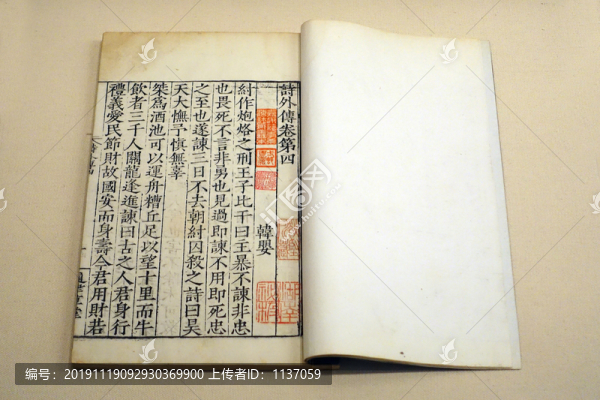 詩外傳卷第四
韓嬰
紂作炮烙之刑王子比干曰主暴不諫非忠
也畏死不言非勇也見過即諫不用即死忠
之至也遂諫三日不去朝紂囚殺之詩曰昊
天大憮予愼無辜
桀爲酒池可以運舟糟丘足以望十里而牛
飲者三千人關龍逢進諫曰古之人君身行
禮義愛民節財故國安而身壽今君用財若
编号：20191119092930369900 上传者ID：1137059